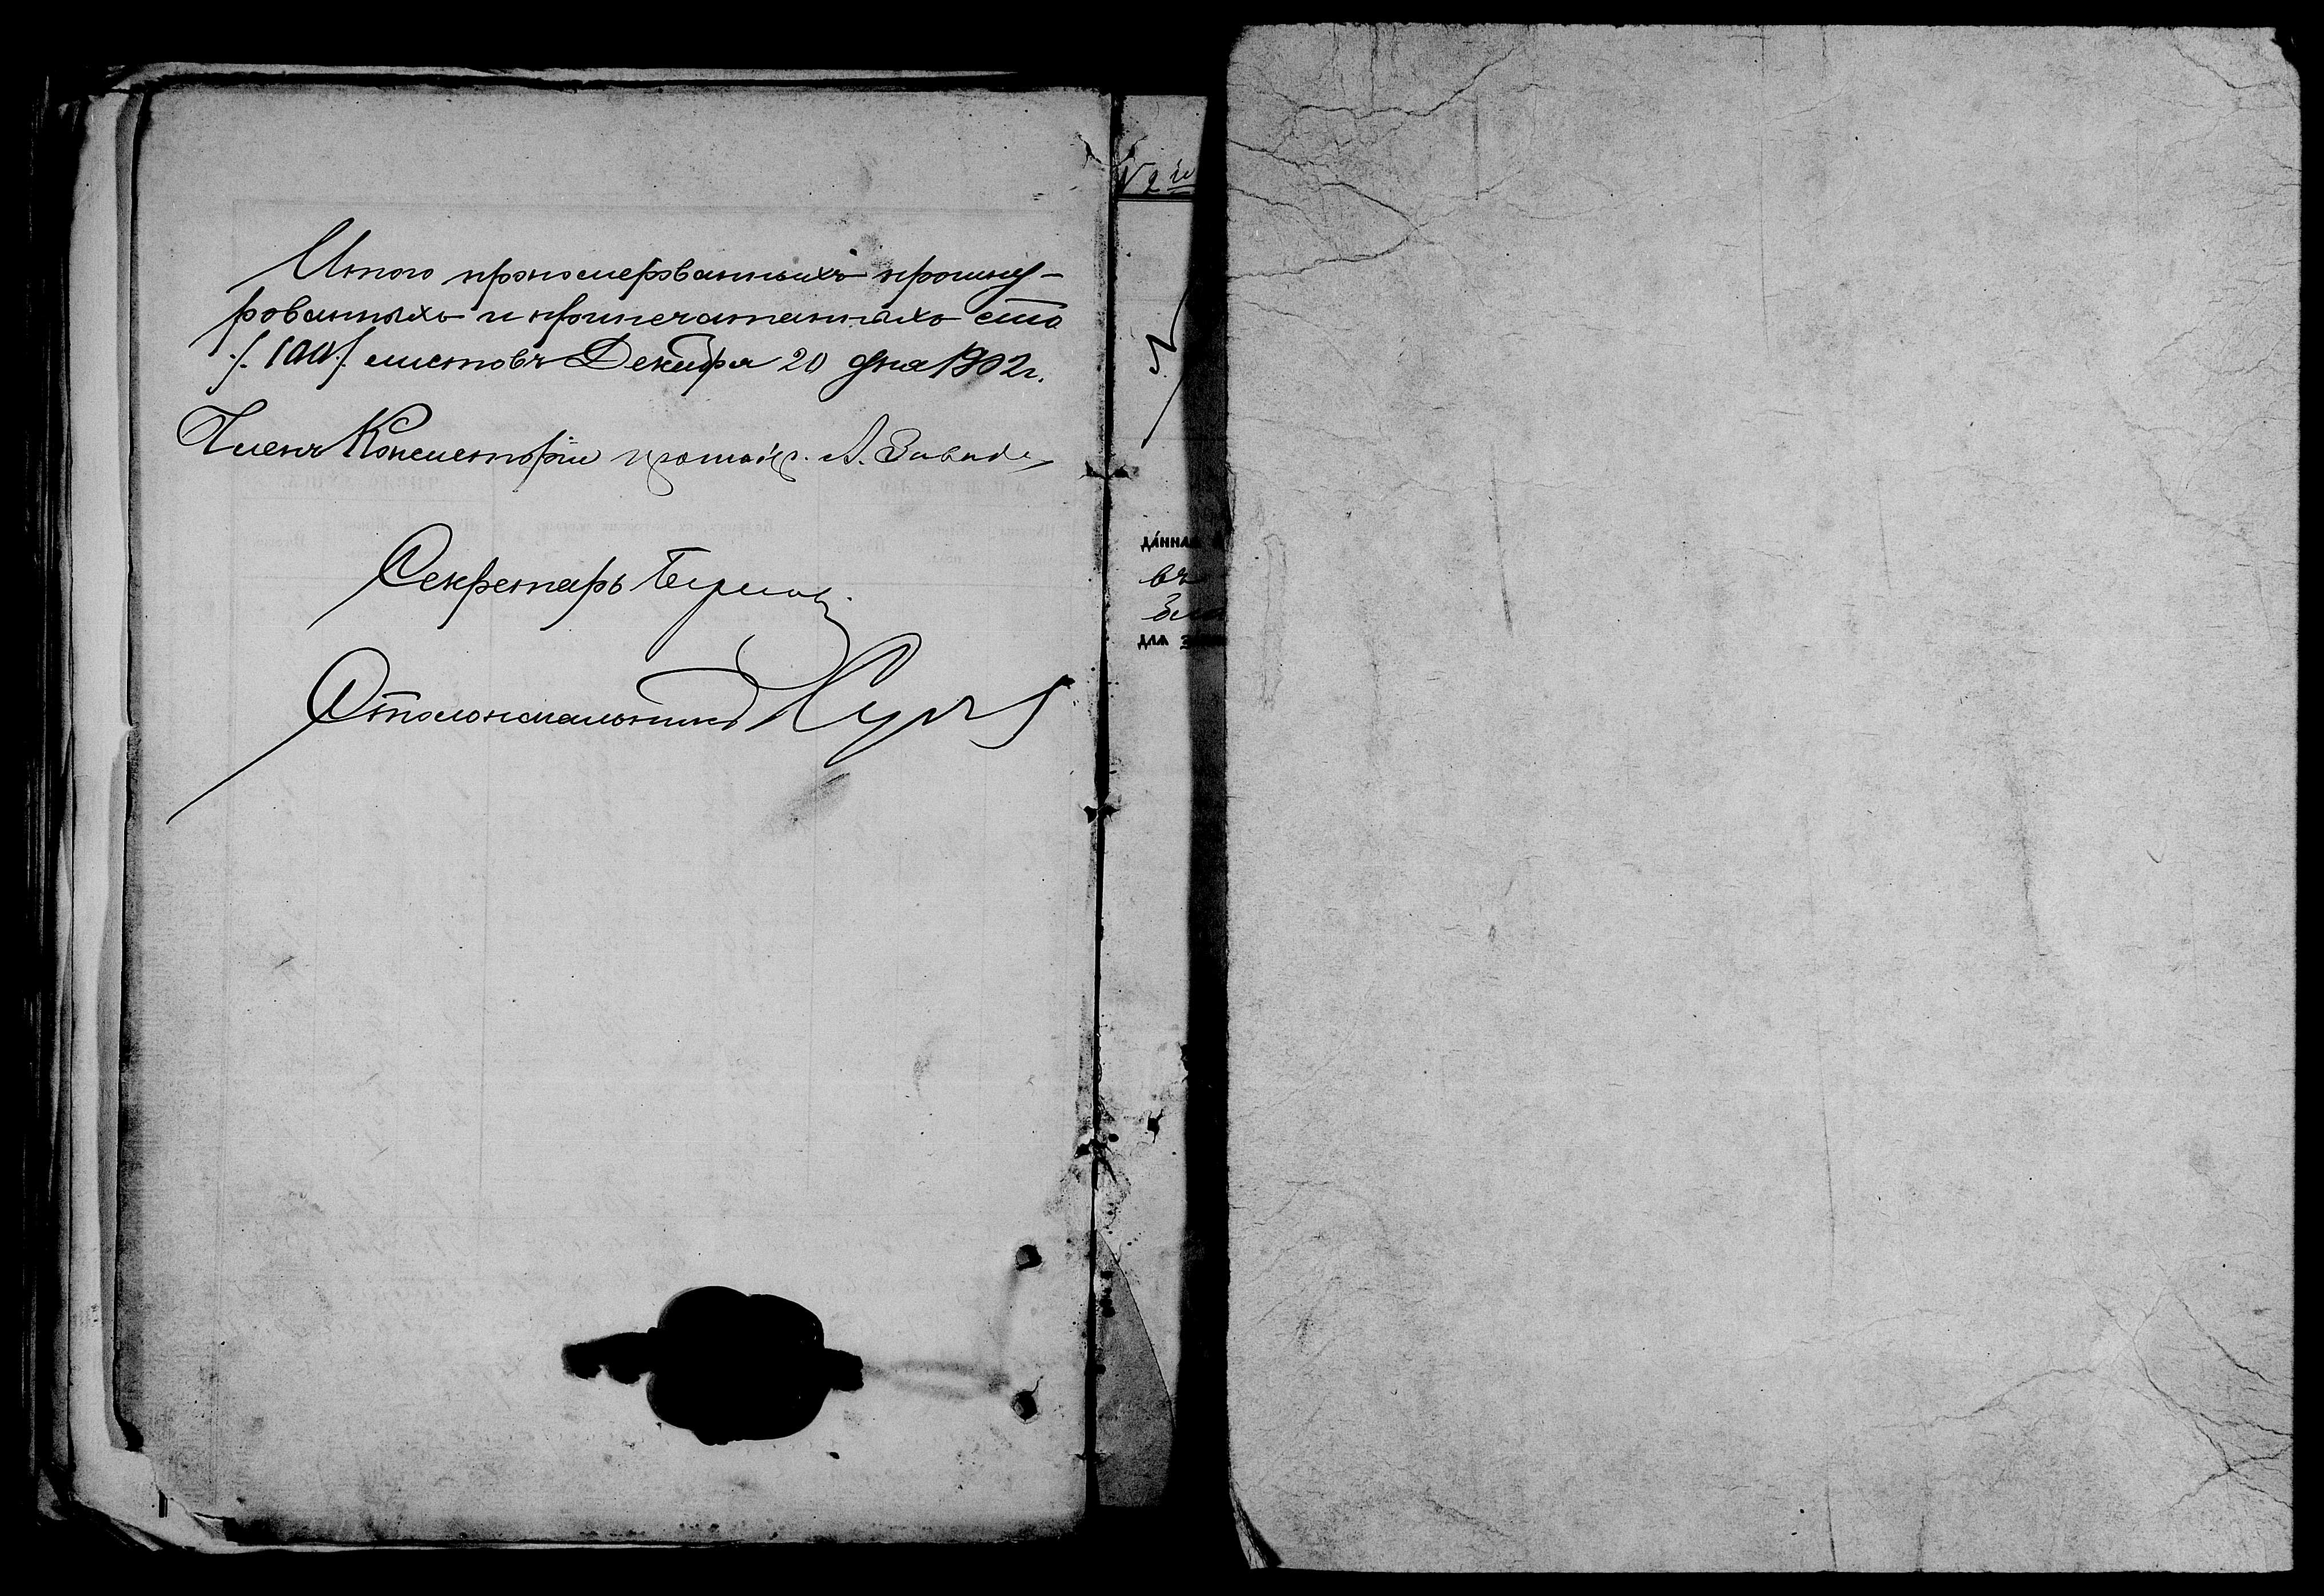 Итого прономерованныхъ прошну-
рованныхъ и припечатанныхъ сто
/. 100 ./ листовъ Декабря 20 дня 1902 г.
Членъ Консисторіи протоіер. А.
Секретарь
Столоначальникъ
№ 2й
данная
въ
для